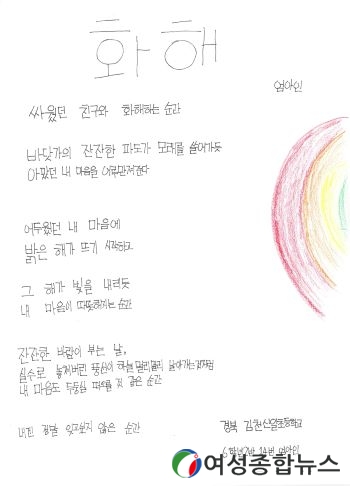 화해
엄아인
싸웠던 친구와 화해하는 순간
바닷가의 잔잔한 파도가 모래를 쓸어가듯
아팠던 내 마음을 어루만져준다
어두웠던 내 마음에
밝은 해가 뜨기 시작하고
그 해가 빛을 내리듯
내 마음이 따뜻해지는 순간
잔잔한 바람이 부는 날,
실수로 놓쳐버린 풍선이 하늘 멀리멀리 날아가는 것처럼
내 마음도 두둥실 떠오를 것 같은 순간
내가 정말 잊고싶지 않은 순간
경북 김천신일초등학교
6학년 2반 엄아인
여성종합뉴스